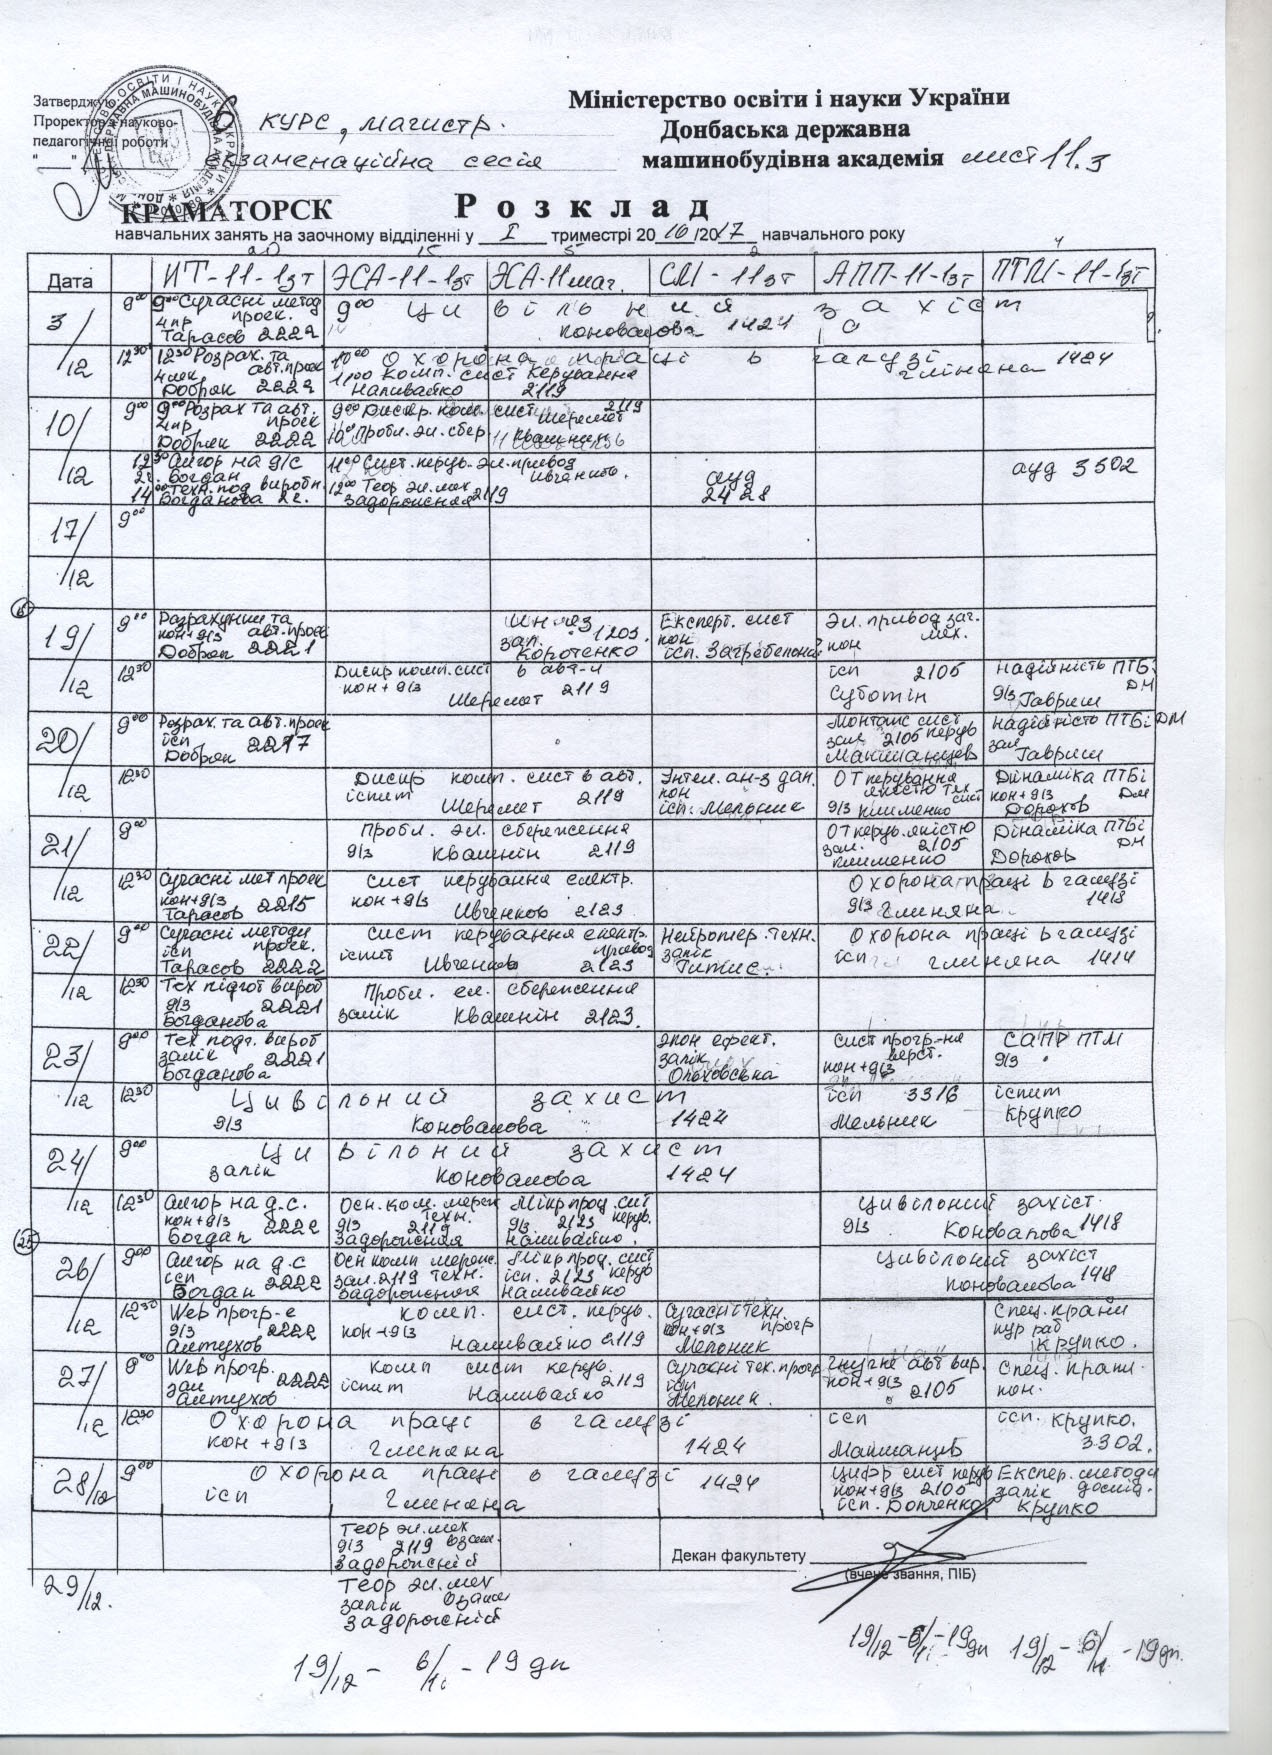 Затверджую
Проректор з науково-
педагогічної роботи
6 курс, магистр.
екзаменаційна сесія
Міністерство освіти і науки України
Донбаська державна
машинобудівна академія лист 11.з
КРАМАТОРСК
Розклад
навчальних занять на заочному відділенні у I триместрі 2016/2017 навчального року
20 15 5 2 4
Дата ИТ-11-1зт ЭСА-11-1зт ЭСА-11маг. СМ-11зт АПП-11-1зт ПТМ-11-1зт
3/12
9⁰⁰ 9⁰⁰ Сучасні метод проек.
4пр
Тарасов 2222
9⁰⁰ Цивільний захіст
Коновалова 1424
12³⁰ 12³⁰ Розрах. та авт.проек
4лек
Добряк 2222
10⁰⁰ Охорона праці в галузі
Глиняна 1424
11⁰⁰ Комп. сист керування
Наливайко 2119
10/12
9⁰⁰ 9⁰⁰ Розрах та авт. проек
4пр
Добряк 2222
9⁰⁰ Дискр. комп. сист 2119
Шеремет
10⁰⁰ Пробл. эл. сбер Квашнин
12³⁰ Алгор на д/с
2г. Богдан
14⁰⁰ Техн. под виробн.
Богданова 2г.
11⁰⁰ Сист. керув. эл. привод
Ивченков.
12⁰⁰ Теор эл. мех
Задорожняя 2119
ауд
2428
ауд 3302
17/12
9⁰⁰
19/12
9⁰⁰ Розрахунки та
кон+д/з авт.проек
Добряк 2221
зал. 1203.
Коротенко
Експерт. сист
кон
ісп. Загребельний
Эл. привод заг.
кон мех.
12³⁰
Дискр комп. сист в авт-и
кон + д/з 2119
Шеремет
ісп 2105
Суботін
Надійність ПТБі ДМ
д/з Гавриш
20/12
9⁰⁰ Розрах. та авт. проек
ісп 2217
Добряк
Монтаж сист
зал 2105 керув
Макшанцев
Надійність ПТБі ДМ
зал
Гавриш
12³⁰
Дискр комп. сист в авт.
іспит 2119
Шеремет
Інтел. ан-з дан.
кон
ісп. Мельник
ОТ керування
якістю тех
д/з Клименко сист
Динаміка ПТБі
кон+д/з ДМ
Дорохов
21/12
9⁰⁰
Пробл. эл. сбереження
д/з Квашнін 2119
ОТ керув. якістю
зал. 2105
Клименко
Дінаміка ПТБі
ДМ
Дорохов
12³⁰ Сучасні мет проек
кон+д/з
Тарасов 2215
Сист керування електр.
кон + д/з
Ивченков 2123
Охорона праці в галузі
д/з Глиняна. 1418
22/12
9⁰⁰ Сучасні методи
ісп проек.
Тарасов 2222
Сист керування електр.
іспит привод
Ивченков 2123
Нейромер. техн.
залік
Гитис.
Охорона праці в галузі
ісп Глиняна 1414
12³⁰ Тех підгот вироб
д/з 2221
Богданова
Пробл. ел. сбереження
залік Квашнін 2123.
23/12
9⁰⁰ Тех подг. вироб
залік 2221
Богданова
Экон ефект.
залік
Ольховська
Сист прогр-ня
верст.
кон+д/з
САПР ПТМ
д/з
12³⁰
Цивільний захист
д/з Коновалова 1424
ісп 3316
Мельник
іспит
Крупко
24/12
9⁰⁰
Цивільний захист
залік Коновалова 1424
12³⁰ Алгор на д.с.
кон+д/з 2222
Богдан
Осн. ком. мереж
техн.
д/з 2119
Задорожняя
Мікр прод. сист
д/з. 2123 керув.
Наливайко.
Цивільний захіст.
д/з. Коновалова 1418
25
26/12
9⁰⁰ Алгор на д.с
ісп
Богдан 2222
Осн комп мереж.
зал. 2119 техн.
Задорожняя
Мікр прод. сист
ісп. 2123 керув
Наливайко
Цивільний захіст
Коновалова 1418
12³⁰ Web прогр-е
д/з 2222
Алтухов
комп. сист. керув.
кон+д/з
Наливайко 2119
Сучасні техн.
кон+д/з прогр
Мельник
Спец. крани
кур раб
Крупко.
27/12
9⁰⁰ Web прогр.
зал 2222
Алтухов
комп сист керув.
іспит 2119
Наливайко
Сучасні тех. прогр
ісп
Мельник.
Гнучке авт вир.
кон+д/з
2105
Спец. крани.
кон.
12³⁰
Охорона праці в галузі
кон+д/з Глиняна 1424
ісп
Макшанцев
ісп. Крупко.
3302.
28/12
9⁰⁰
Охорона праці в галузі
ісп Глиняна 1424
Цифр сист керув
кон+д/з 2105
ісп. Донченко
Експер. методи
залік дослід.
Крупко
Теор эл. мех
д/з 2119 взаєм.
Задорожній
Декан факультету
(вчене звання, ПІБ)
29/12.
Теор эл. мех
залік
Задорожній
19/12 - 6/1 - 19 дн
19/12 - 6/1 - 19 дн
19/12 - 6/1 - 19 дн.